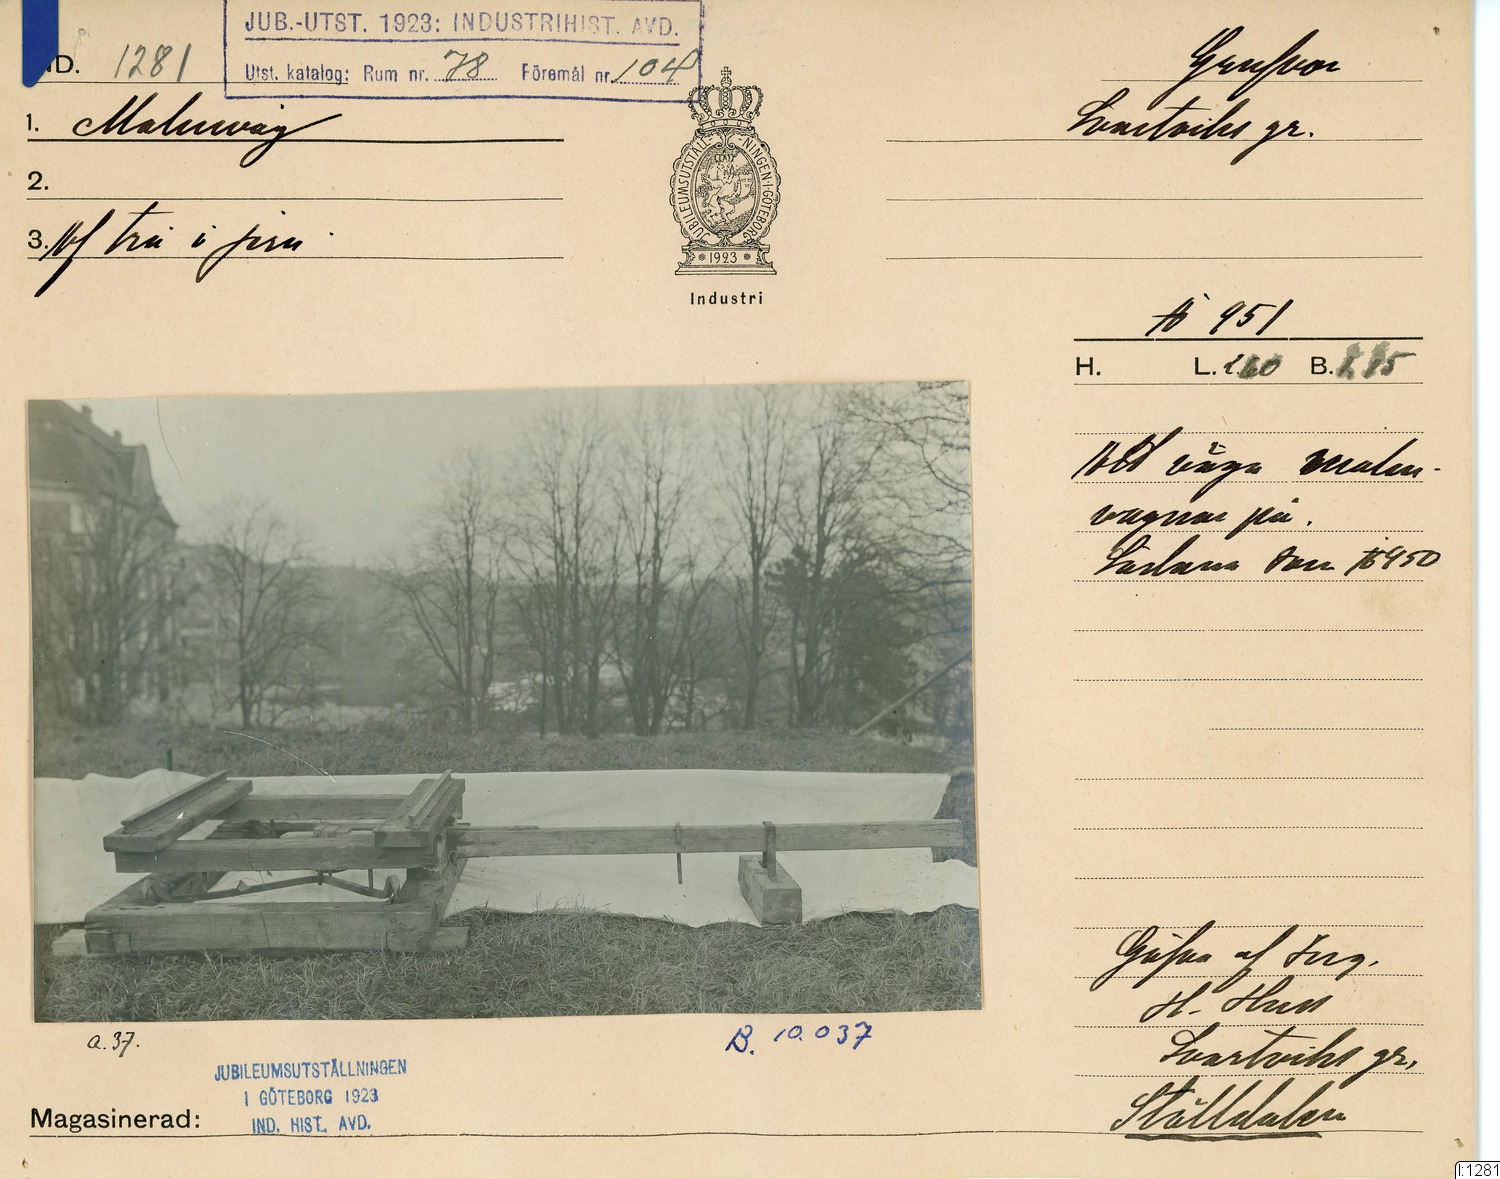 JUB.-UTST. 1923: INDUSTRIHIST. AVD.
Utst. katalog: Rum nr. 78 Föremål nr. 104
IND. 1281
1. Malmvåg
2.
3. Af trä o järn
JUBILEUMSUTSTÄLLNINGEN I GÖTEBORG
1923
Industri
Grufvor
Svartviks gr.
N 951
H. L. 2.60 B.
Att väga malm-
vagnar på.
N 950
Gåfva af Ing.
H.
Svartviks gr,
Ställdalen
a. 37.
B. 10.037
JUBILEUMSUTSTÄLLNINGEN
I GÖTEBORG 1923
IND. HIST. AVD.
Magasinerad:
I:1281